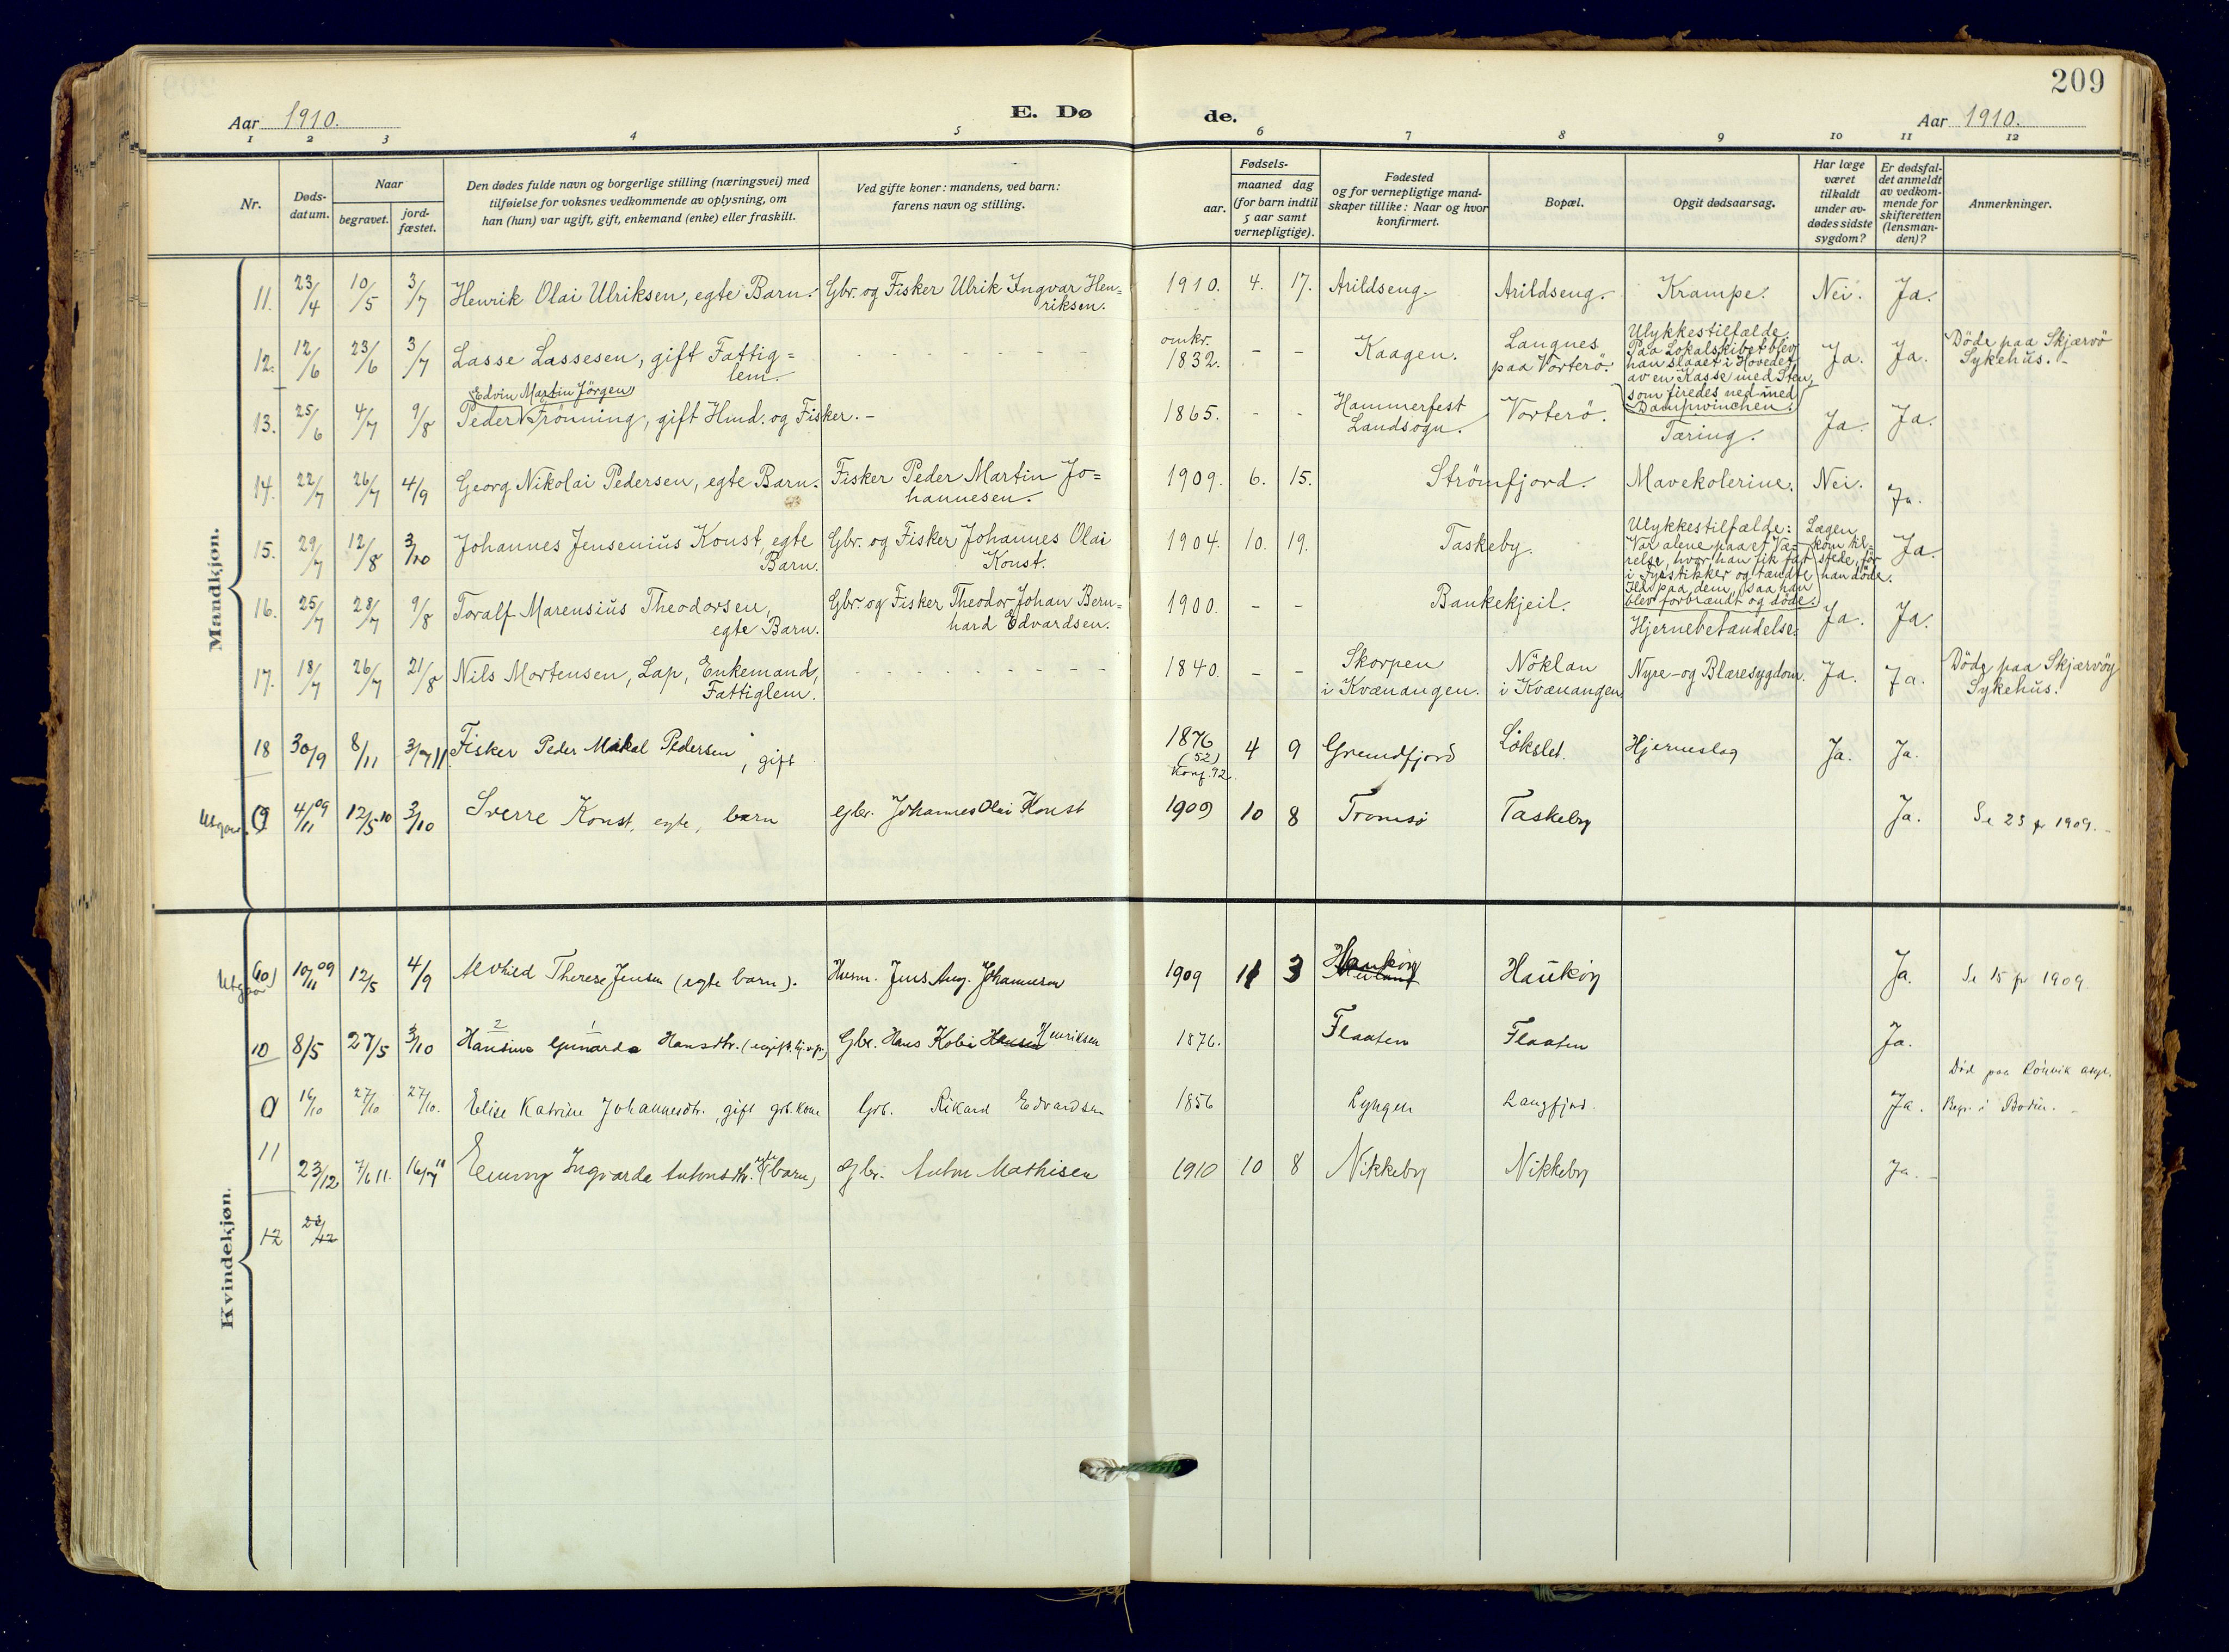 209
Aar 1910.
E. Dø de.
Aar 1910.
1 2 3 4 5 6 7 8 9 10 11 12
Nr.
Døds-
datum.
Naar
begravet.
jord-
fæstet.
Den dødes fulde navn og borgerlige stilling (næringsvei) med
tilføielse for voksnes vedkommende av oplysning, om
han (hun) var ugift, gift, enkemand (enke) eller fraskilt.
Ved gifte koner: mandens, ved barn:
farens navn og stilling.
Fødsels-
aar.
maaned dag
(for barn indtil
5 aar samt
vernepligtige).
Fødested
og for vernepligtige mand-
skaper tillike: Naar og hvor
konfirmert.
Bopæl.
Opgit dødsaarsag.
Har læge
været
tilkaldt
under av-
dødes sidste
sygdom?
Er dødsfal-
det anmeldt
av vedkom-
mende for
skifteretten
(lensman-
den)?
Anmerkninger.
Mandkjøn.
11. 23/4 10/5 3/7 Henrik Olai Ulriksen, egte Barn. Gbr. og Fisker Ulrik Ingvar Hen=
riksen. 1910. 4. 17. Arildseng. Arildseng. Krampe. Nei. Ja.
12. 12/6 23/6 3/7 Lasse Lassesen, gift Fattig=
lem. - - - - - -
omkr.
1832. - - Kaagen. Langnes
paa Vorterö.
Ulykkestilfælde.
Paa Lokalskibet blev
han slaaet i Hovedet
av en Kasse med Sten,
som firedes ned med
Dampwinchen.
Ja. Ja. Döde paa Skjærvö
Sykehus.
Edvin Martin Jörgen
13. 25/6 4/7 9/8 Peder Frönning, gift Hmd. og Fisker. - 1865. - - Hammerfest
Landsogn. Vorterö. Tæring. Ja. Ja.
14. 22/7 26/7 4/9 Georg Nikolai Pedersen, egte Barn. Fisker Peder Martin Jo=
hannesen. 1909. 6. 15. Strömfjord. Mavekolerine. Nei. Ja.
15. 29/7 12/8 3/10 Johannes Jensenius Konst, egte
Barn. Gbr. og Fisker Johannes Olai
Konst. 1904. 10. 19. Taskeby.
Ulykkestilfælde:
Var alene paa et Væ=
relse, hvor han fik fat
i Fyrstikker og tændte
Ild paa dem, saa han
blev forbrændt og döde.
Lægen
kom til=
stede, för
han döde.
Ja.
16. 25/7 28/7 9/8 Toralf Marensius Theodorsen,
egte Barn. Gbr. og Fisker Theodor Johan Bern=
hard Edvardsen. 1900. - - Bankekjeil. Hjernebetændelse. Ja. Ja.
17. 18/7 26/7 21/8 Nils Mortensen, Lap, Enkemand,
Fattiglem. - - - - - - 1840. - - Skorpen
i Kvænangen. Nöklan
i Kvænangen Nyre- og Blæresygdom. Ja. Ja. Döde paa Skjærvöy
Sykehus.
18 30/9 8/11 3/7 11 Fisker Peder Mikal Pedersen, gift 1876
(52)
Konf. 92. 4 9 Grundfjord Lökslet. Hjerneslag Ja. Ja.
Utgaar (9 4/11 09 12/5 10 3/10 Sverre Konst, egte, barn gbr. Johannes Olai Konst 1909 10 8 Tromsö Taskeby Ja. Se 23 fr 1909.
Kvindekjøn.
Utgaar (10) 10/11 09 12/5 4/9 Alvhild Therese Jensen (egte barn). Husm. Jens Aug. Johannesen 1909 11 3 Haukøy Haukøy Ja. Se 15 fr 1909
10 8/5 27/5 3/10 Hansine Gunarda Hansdtr. Gbr. Hans Kobi Hansen Henriksen 1876. Flaaten Flaaten Ja.
Død paa Rönvik asyl.
16/10 27/10 27/10. Elise Katrine Johannesdtr., gift grb. kone Grb. Rikard Edvardsen 1856 Lyngen Langfjord. Ja. Begr. i Bodin.
11
23/12 7/6 11. 16/7 11 Emmy Ingvarda Antonsdtr. (egte barn) Gbr. Anton Mathisen 1910 10 8 Nikkeby Nikkeby Ja.
12 23/12